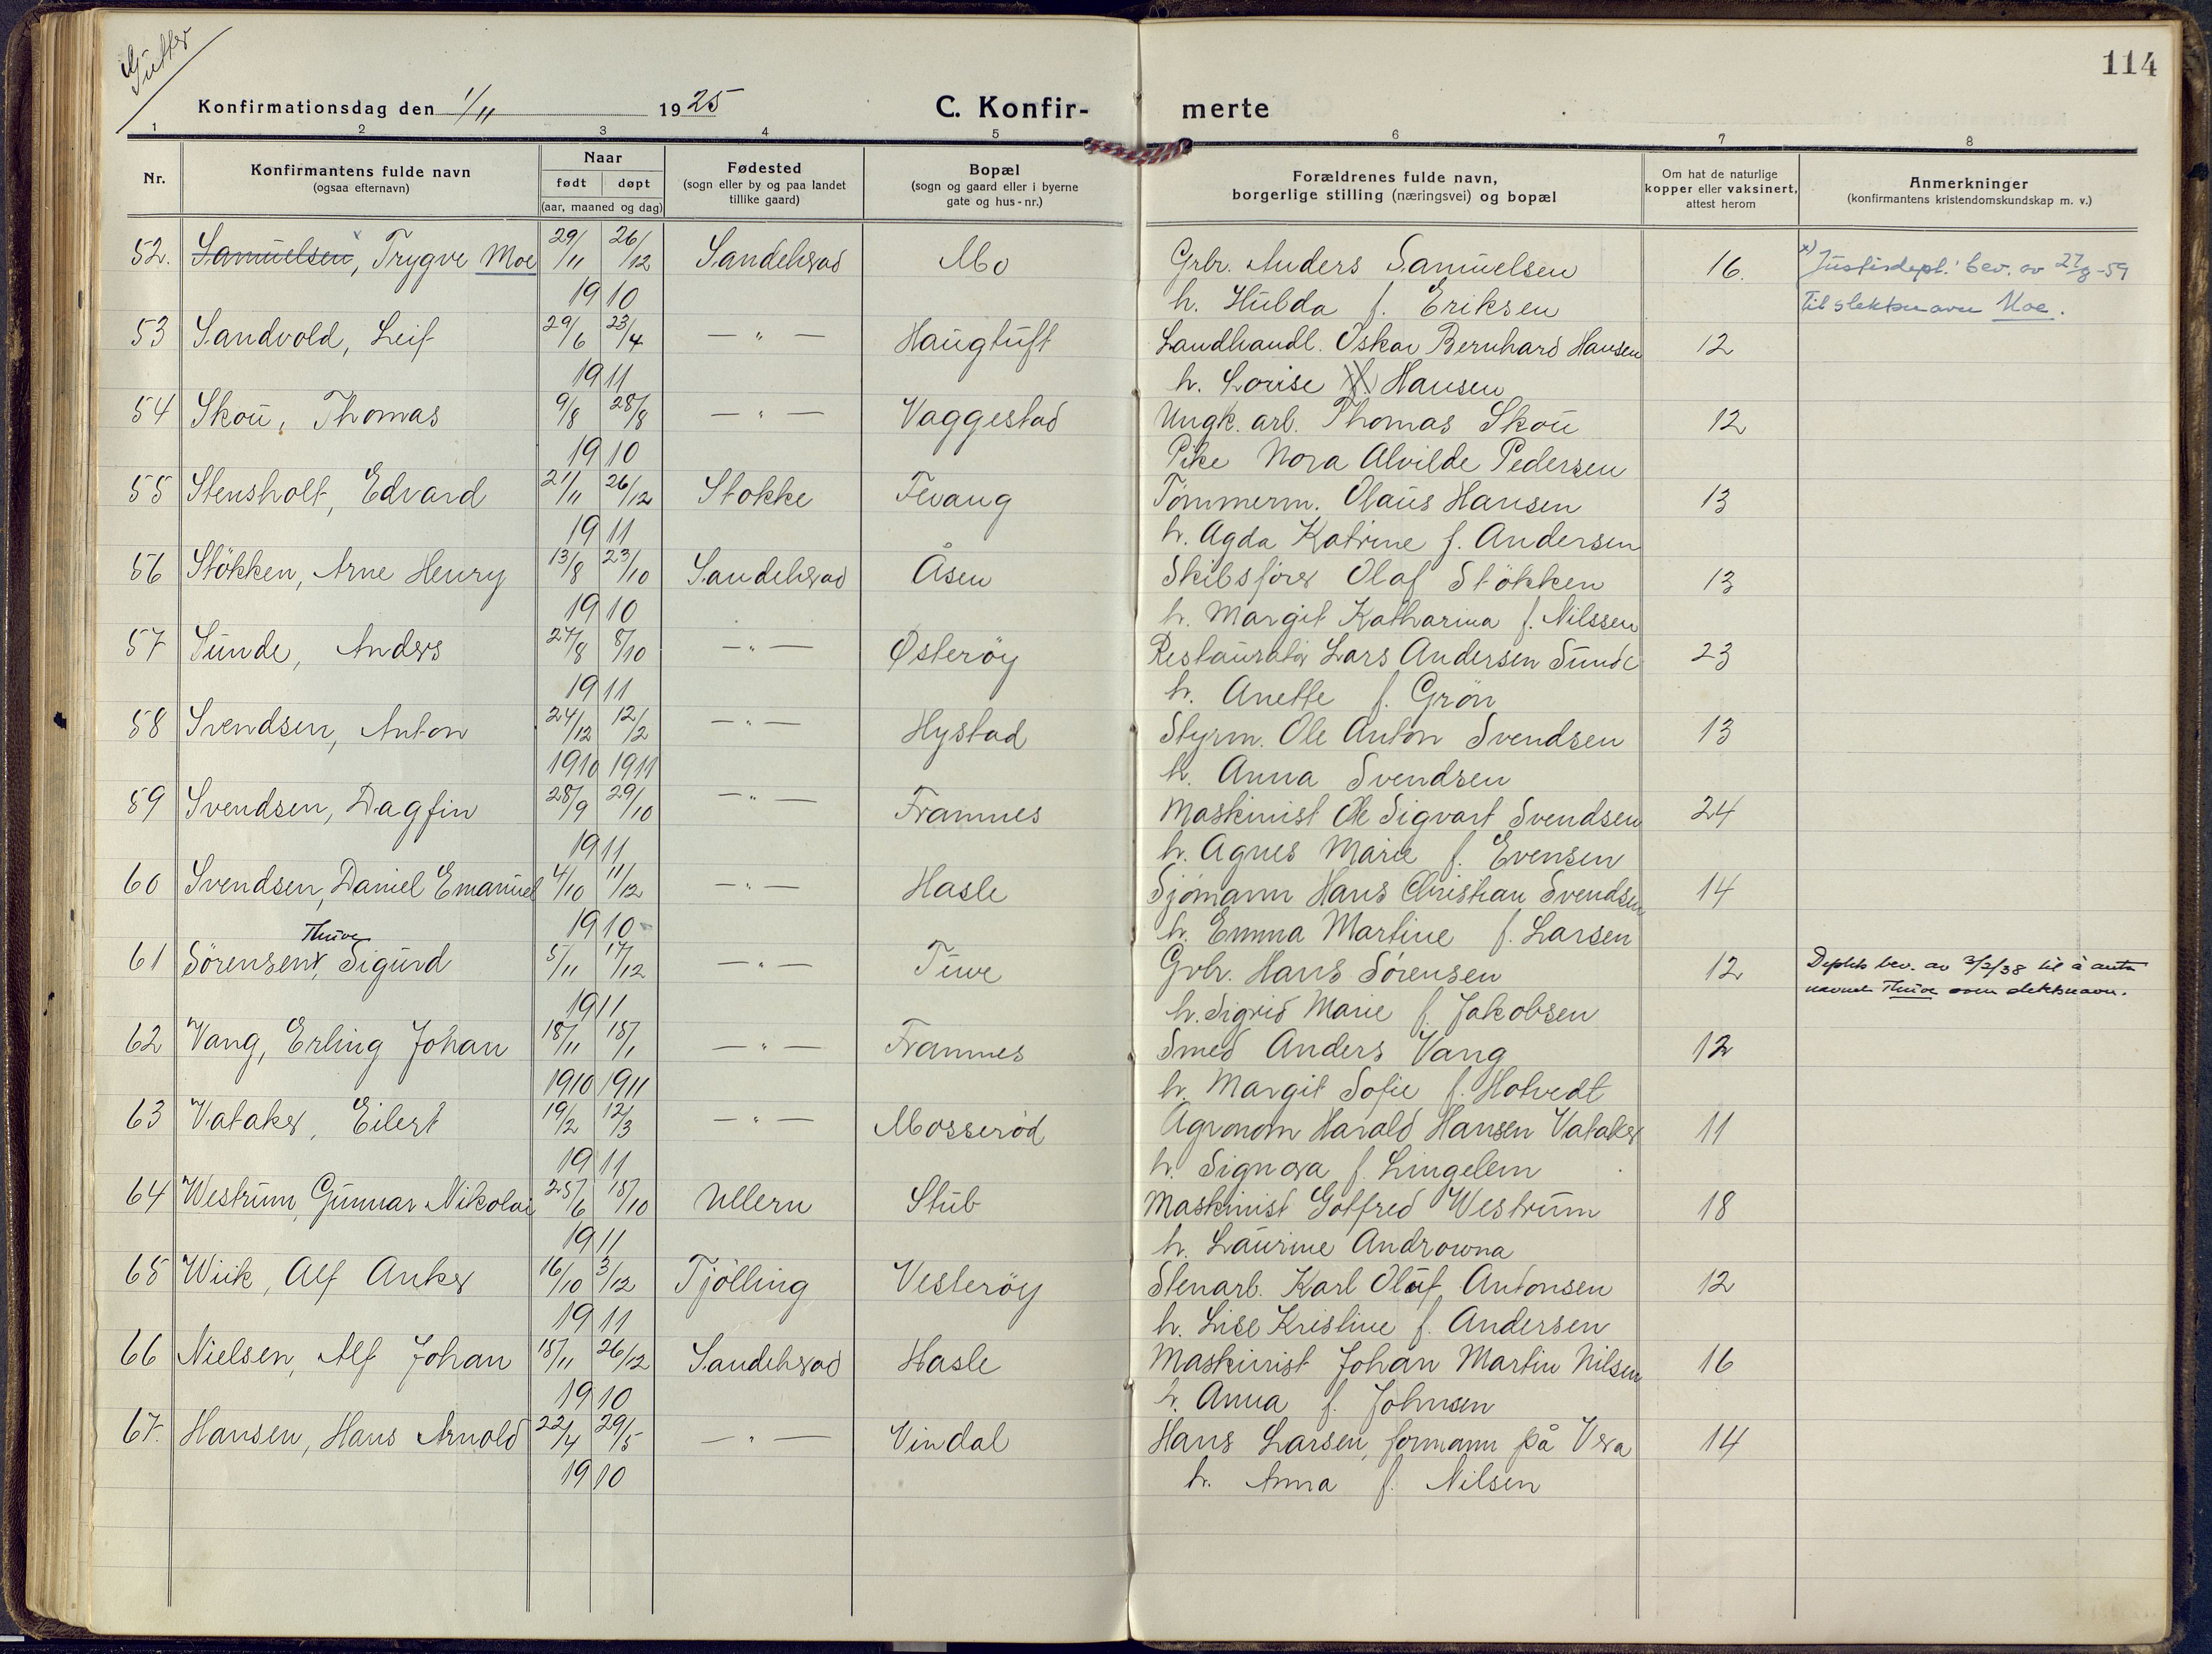 Gutter
114
Konfirmationsdag den 1/11 1925
C. Konfir-merte
1 2 3 4 5 6 7 8
Nr.
Konfirmantens fulde navn
(ogsaa efternavn)
Naar
født døpt
(aar, maaned og dag)
Fødested
(sogn eller by og paa landet
tillike gaard)
Bopæl
(sogn og gaard eller i byerne
gate og hus-nr.)
Forældrenes fulde navn,
borgerlige stilling (næringsvei) og bopæl
Om hat de naturlige
kopper eller vaksinert,
attest herom
Anmerkninger
(konfirmantens kristendomskundskap m. v.)
52. Samuelsen x, Trygve Moe 29/11 26/12 Sandeherad Mo Grbr. Anders Samuelsen 16. x) Justisdept. bev. av 27/8-59
1910 h. Hulda f. Eriksen til slektsnavn Moe.
53 Sandvold, Leif 29/6 23/4 — " — Haugtuft Landhandl. Oskar Bernhard Hansen 12
1911 h. Lovise Hansen
54 Skou, Thomas 9/8 28/8 — " — Vaggestad Ungk. arb. Thomas Skou 12
1910 Pike Nora Alvilde Pedersen
55 Stensholt, Edvard 21/11 26/12 Stokke Fevang Tømmerm. Olaus Hansen 13
1911 h. Agda Katrine f. Andersen
56 Stökken, Arne Henry 13/8 23/10 Sandeherad Åsen Skibsfører Olaf Stökken 13
1910 h. Margit Katharina f. Nilssen
57 Sunde, Anders 27/8 8/10 — " — Østerøy Restauratør Lars Andersen Sunde 23
1911 h. Anette f. Grön
58 Svendsen, Anton 24/12 12/2 — " — Hystad Styrm. Ole Anton Svendsen 13
1910 1911 h. Anna Svendsen
59 Svendsen, Dagfin 28/9 29/10 — " — Framnes Maskinist Ole Sigvart Svendsen 24
1911 h. Agnes Marie f. Evensen
60 Svendsen, Daniel Emanuel 4/10 11/12 — " — Hasle Sjømann Hans Christian Svendsen 14
1910 h. Emma Martine f. Larsen
Thuve
61 Sørensen, Sigurd 5/11 17/12 — " — Tuve Grbr. Hans Sørensen 12 Depts bev. av 3/2/38 til å anta
1911 h. Sigrid Marie f. Jakobsen navnet Thuve som slektsnavn.
62 Vang, Erling Johan 18/11 18/1 — " — Framnes Smed Anders Vang 12
1910 1911 h. Margit Sofie f. Hotvedt
63 Vataker, Eilert 19/2 12/3 — " — Mosserød Agronom Harald Hansen Vataker 11
1911 h. Signora f. Lingelem
64 Westrum, Gunnar Nikolai 25/6 18/10 Ullern Stub Maskinist Gotfred Westrum 18
1911 h. Laurine Androwna
65 Wiik, Alf Anker 16/10 3/12 Tjölling Vesterøy Stenarb. Karl Olaf Antonsen 12
1911 h. Lise Kristine f. Andersen
66 Nielsen, Alf Johan 18/11 26/12 Sandeherad Hasle Maskinist Johan Martin Nilsen 16
1910 h. Anna f. Johnsen
67. Hansen, Hans Arnold 22/4 29/5 — " — Vindal Hans Larsen, formann på Vera 14
1910 h. Anna f. Nilsen